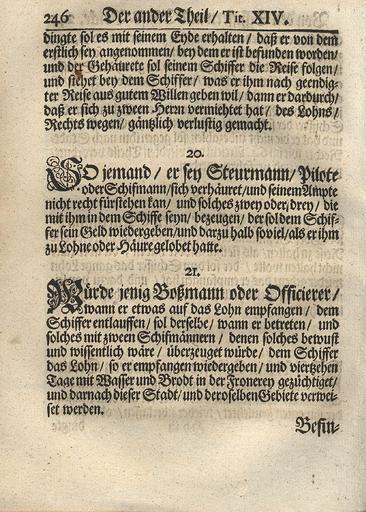 246 Der ander Theil / Tit. XIV.
dingte sol es mit seinem Eyde erhalten / daß er von dem
erstlich sey angenommen / bey dem er ist befunden worden /
und der Gehäurete sol seinem Schiffer die Reise folgen /
und stehet bey dem Schiffer / was er ihn nach geendig-
ter Reise aus gutem Willen geben wil / dann er dardurch /
daß er sich zu zween Herrn vermiethet hat / des Lohns /
Rechts wegen / gäntzlich verlustig gemacht.
20.
SO jemand / er sey Steurmann / Pilote
oder Schifmann / sich verhäuret / und seinem Ampte
nicht recht fürstehen kan / und solches zwey oder drey / die
mit ihm in dem Schiffe seyn / bezeugen / der sol dem Schif-
fer sein Geld wiedergeben / und darzu halb soviel / als er ihm
zu Lohne oder Häure gelobet hatte.
21.
Würde jenig Boßmann oder Officierer /
wann er etwas auf das Lohn empfangen / dem
Schiffer entlauffen / sol derselbe / wann er betreten / und
solches mit zween Schifmännern / denen solches bewust
und wissentlich wäre / überzeuget würde / dem Schiffer
das Lohn / so er empfangen wiedergeben / und viertzehen
Tage mit Wasser und Brodt in der Fronerey gezüchtiget /
und darnach dieser Stadt / und deroselben Gebiete verwei-
set werden.
Befin-